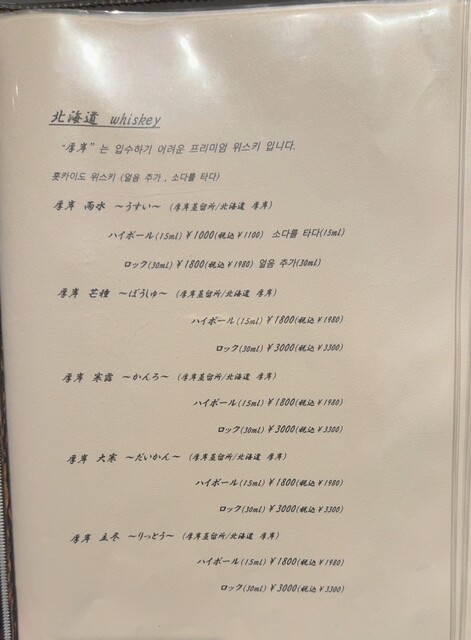 北海道 whiskey
"厚岸" 는 입수하기 어려운 프리미엄 위스키 입니다.
홋카이도 위스키 (얼음 추가 , 소다를 타다)
厚岸 雨水 ～うすい～ (厚岸蒸留所/北海道 厚岸)
ハイボール(15ml) ¥1000(税込¥1100) 소다를 타다(15ml)
ロック(30ml) ¥1800(税込¥1980) 얼음 추가(30ml)
厚岸 芒種 ～ぼうしゅ～ (厚岸蒸留所/北海道 厚岸)
ハイボール(15ml) ¥1800(税込¥1980)
ロック(30ml) ¥3000(税込¥3300)
厚岸 寒露 ～かんろ～ (厚岸蒸留所/北海道 厚岸)
ハイボール(15ml) ¥1800(税込¥1980)
ロック(30ml) ¥3000(税込¥3300)
厚岸 大寒 ～だいかん～ (厚岸蒸留所/北海道 厚岸)
ハイボール(15ml) ¥1800(税込¥1980)
ロック(30ml) ¥3000(税込¥3300)
厚岸 立冬 ～りっとう～ (厚岸蒸留所/北海道 厚岸)
ハイボール(15ml) ¥1800(税込¥1980)
ロック(30ml) ¥3000(税込¥3300)